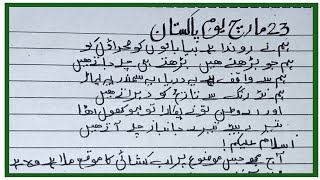 23 مارچ یوم پاکستان
ہم نے روندا ہے بیابانوں کو صحراؤں کو
ہم جو بڑھتے ہیں بڑھتے ہی چلے جاتے ہیں
ہم سے واقف ہے یہ دریا یہ سمندر یہ پہاڑ
ہم نئے رنگ سے تاریخ کو دہراتے ہیں
اور اے وطن تو نے پکارا تو لہو کھول اٹھا
تیرے بیٹے تیرے جانباز چلے آتے ہیں
اسلام علیکم!
آج مجھے جس موضوع پر لب کشائی کا موقع ملا ہے وہ ہے